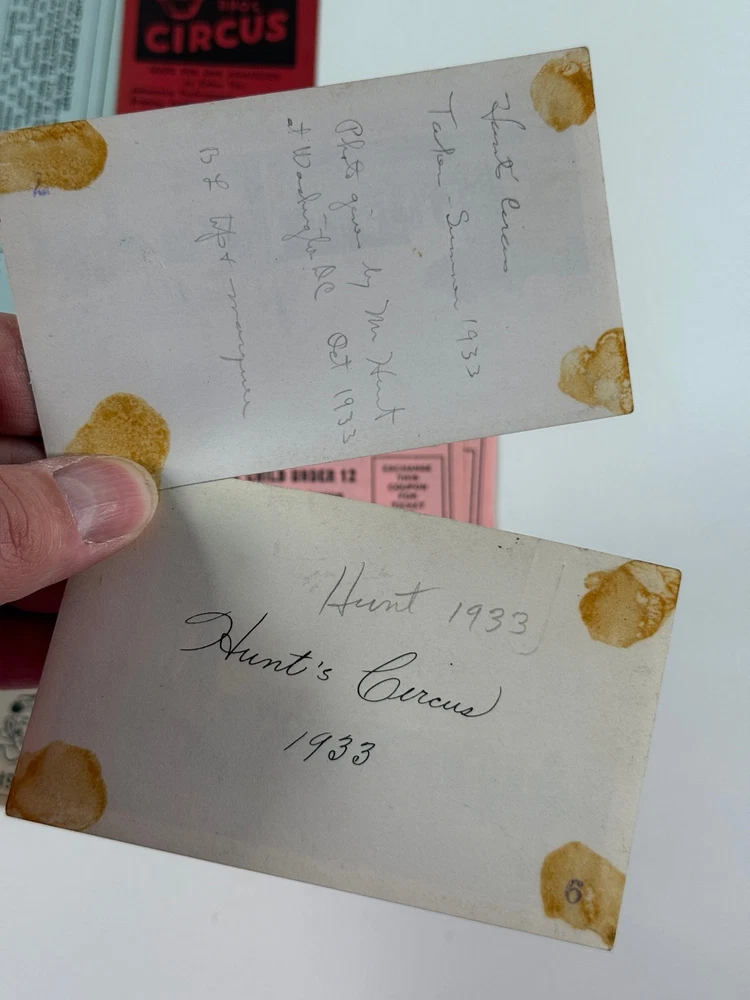 CIRCUS
Hunt Circus
Taken - Summer 1933
Photo given by Mr Hunt
at Washington DC Oct 1933
marquee
CHILD UNDER 12
EXCHANGE
THIS
COUPON
FOR
TICKET
Hunt 1933
Hunt's Circus
1933
6